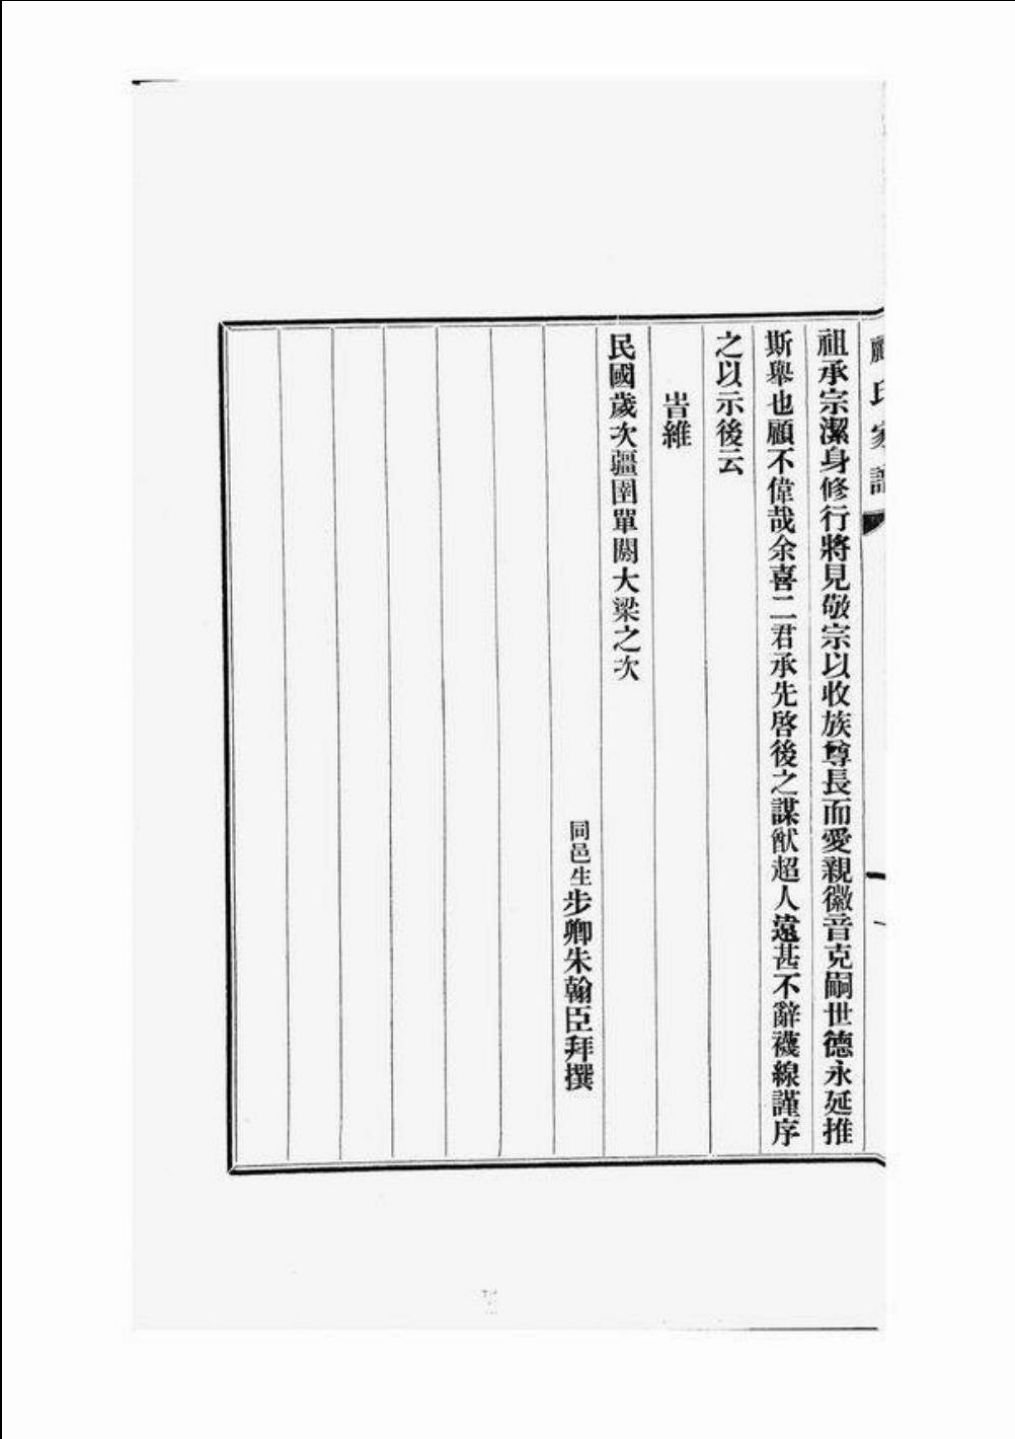 顧氏家譜
祖承宗潔身修行將見敬宗以收族尊長而愛親徽音克嗣世德永延推
斯舉也顧不偉哉余喜二君承先啓後之謀猷超人遠甚不辭襪線謹序
之以示後云
旹維
民國歲次疆圉單閼大梁之次
同邑生步卿朱翰臣拜撰